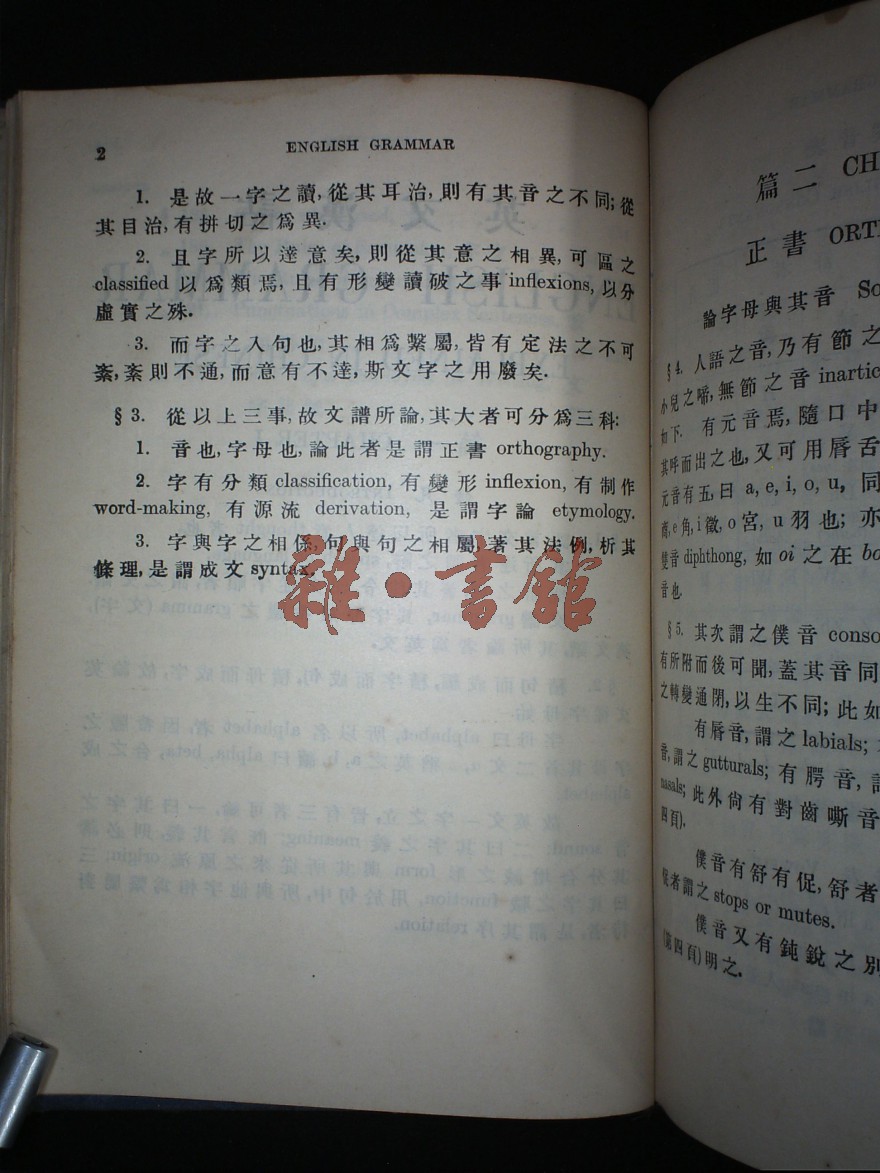 2
ENGLISH GRAMMAR
1. 是故一字之讀,從其耳治,則有其音之不同;從
其目治,有拼切之爲異.
2. 且字所以達意矣,則從其意之相異,可區之
classified 以爲類焉,且有形變讀破之事 inflexions, 以分
虛實之殊.
3. 而字之入句也,其相爲繫屬,皆有定法之不可
紊,紊則不通,而意有不達,斯文字之用廢矣.
§ 3. 從以上三事,故文譜所論,其大者可分爲三科:
1. 音也,字母也,論此者是謂正書 orthography.
2. 字有分類 classification, 有變形 inflexion, 有制作
word-making, 有源流 derivation, 是謂字論 etymology.
3. 字與字之相係,句與句之相屬,著其法例,析其
條理,是謂成文 syntax.
雜·書館
篇二 CH
正書 ORT
論字母與其音 So
§ 4. 人語之音,乃有節之
小兒之啼,無節之音 inartic
如下. 有元音焉,隨口中
其呼而出之也,又可用唇舌
元音有五,曰 a, e, i, o, u, 同
商, e 角, i 徵, o 宮, u 羽也; 亦
雙音 diphthong, 如 oi 之在 bo
音也.
§ 5. 其次謂之僕音 conso
有所附而後可聞,蓋其音同
之轉變通閉,以生不同; 此如
有唇音,謂之 labials;
音,謂之 gutturals; 有腭音,
nasals; 此外尙有對齒嘶音
四頁).
僕音有舒有促,舒者
促者謂之 stops or mutes.
僕音又有鈍銳之別
(第四頁)明之.